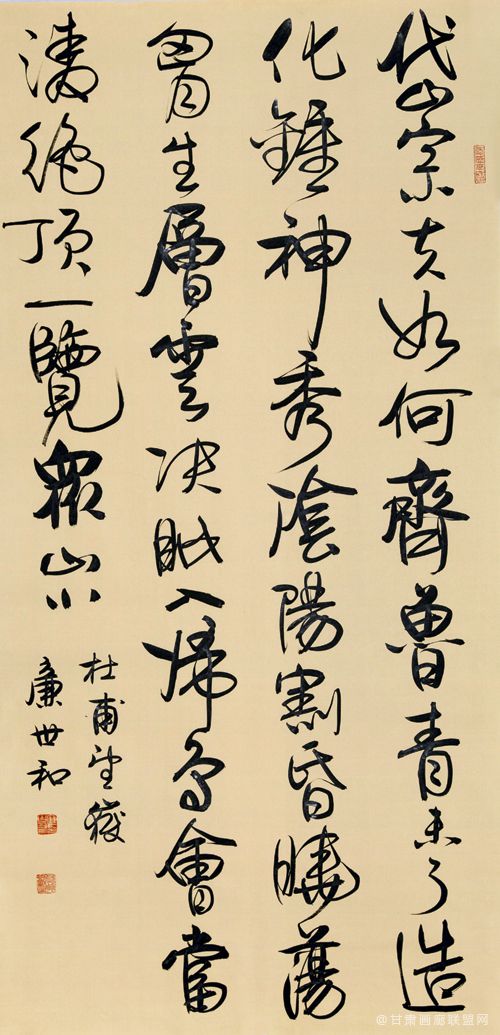 岱宗夫如何齊魯青未了造
化鍾神秀陰陽割昏曉蕩
胷生層雲决眦入歸鳥會當
淩絕頂一覽衆山小
杜甫望嶽
廉世和
@甘肃画廊联盟网